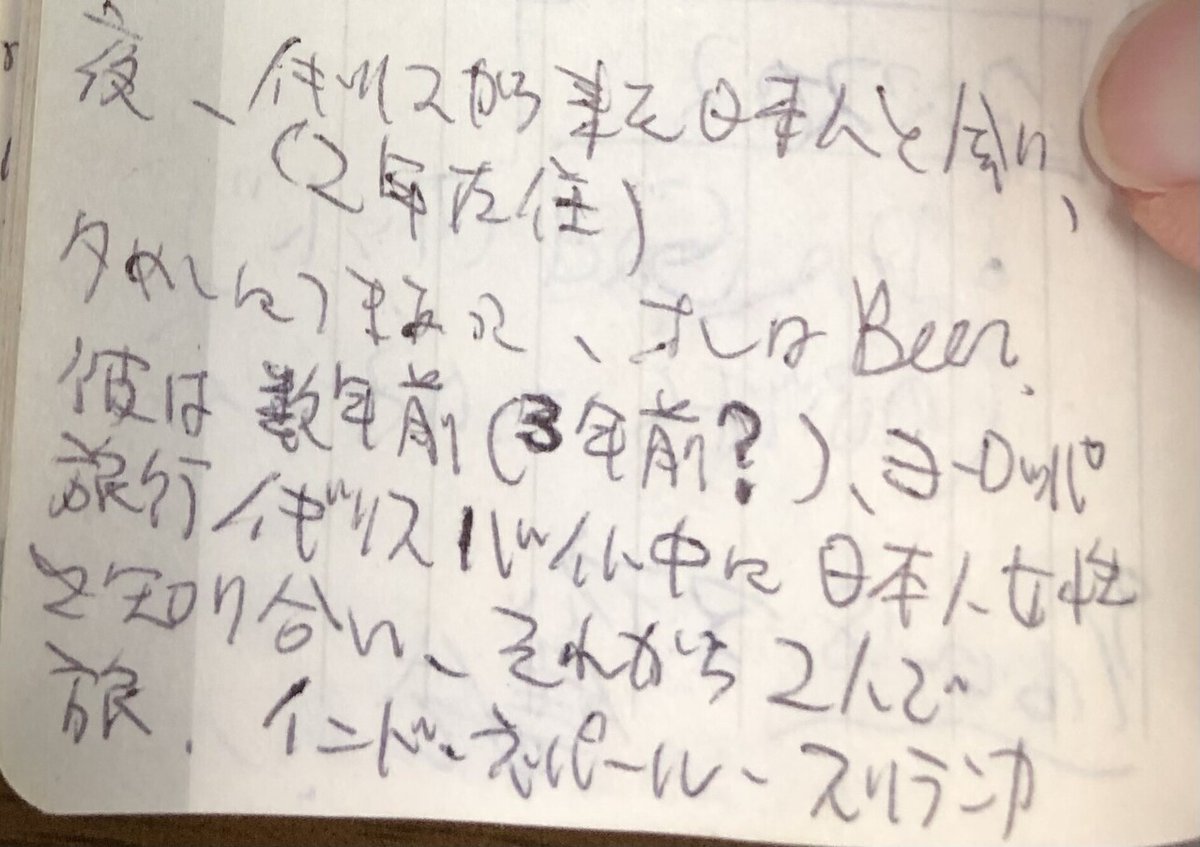 夜、イギリスから来た日本人と会い、
(2年在住)
夕めしにつき合って、オレはBeer.
彼は数年前(3年前?)、ヨーロッパ
旅行 イギリス バイト中に 日本人女性
と知り合い、それから2人で
旅. インド、ネパール、スリランカ